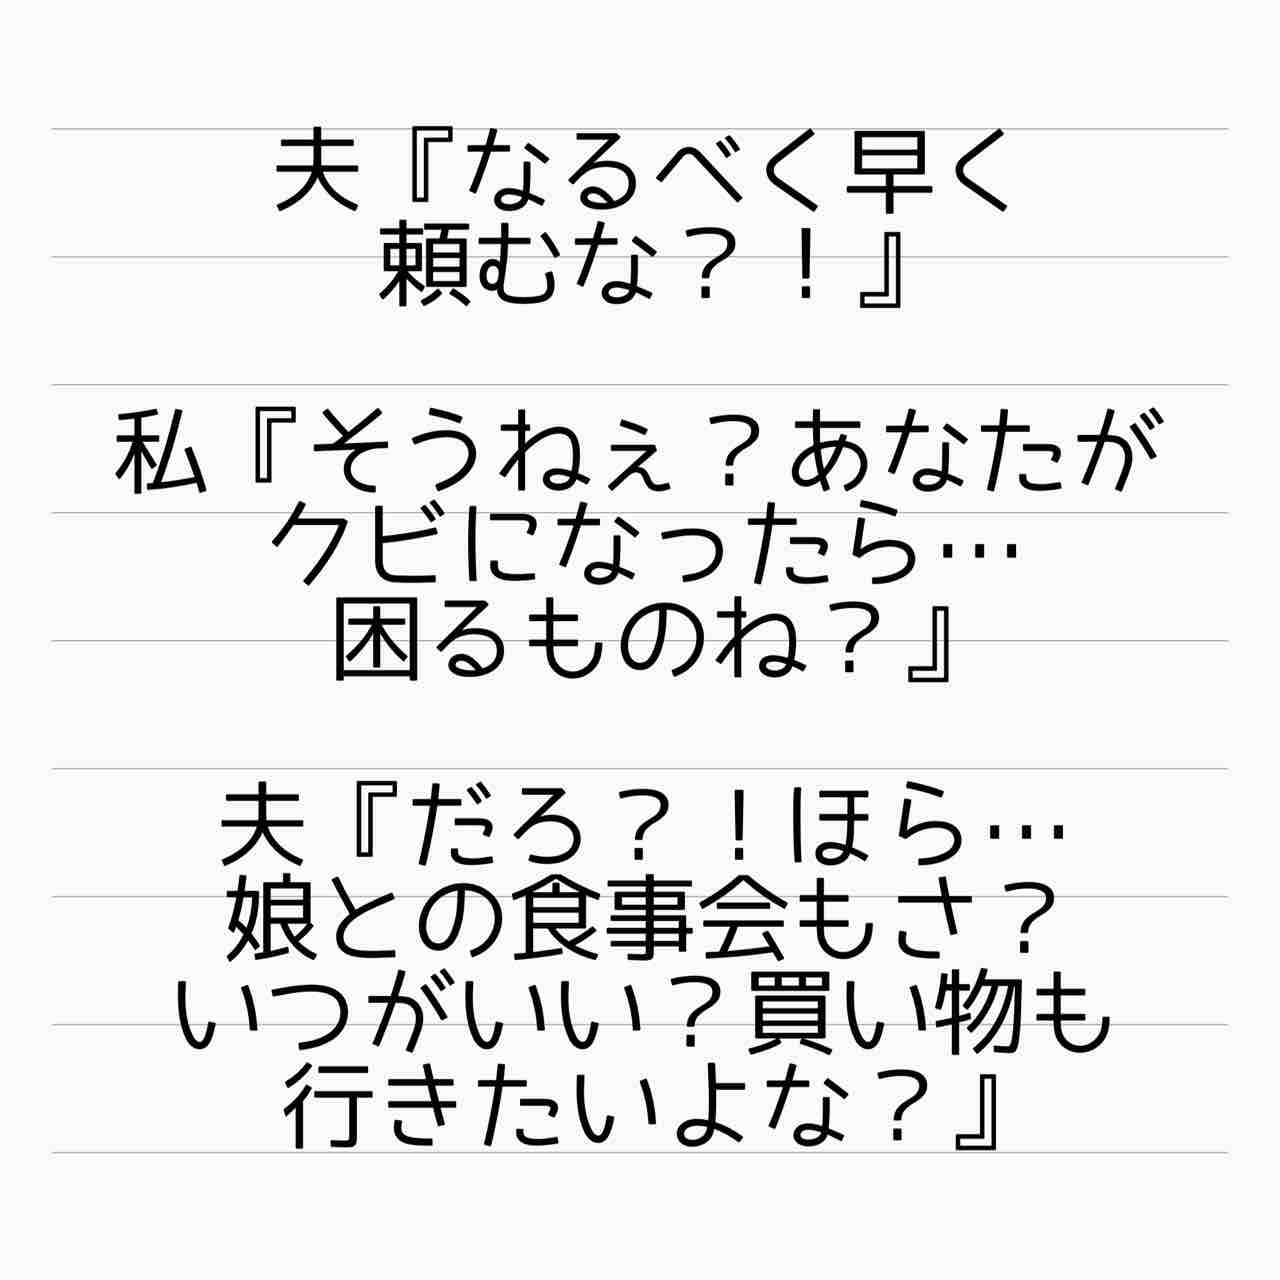 夫『なるべく早く
頼むな？！』
私『そうねぇ？あなたが
クビになったら…
困るものね？』
夫『だろ？！ほら…
娘との食事会もさ？
いつがいい？買い物も
行きたいよな？』